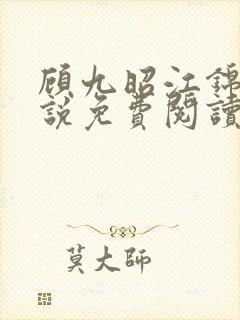 顾九昭江锦
說免費閱讀
莫大師